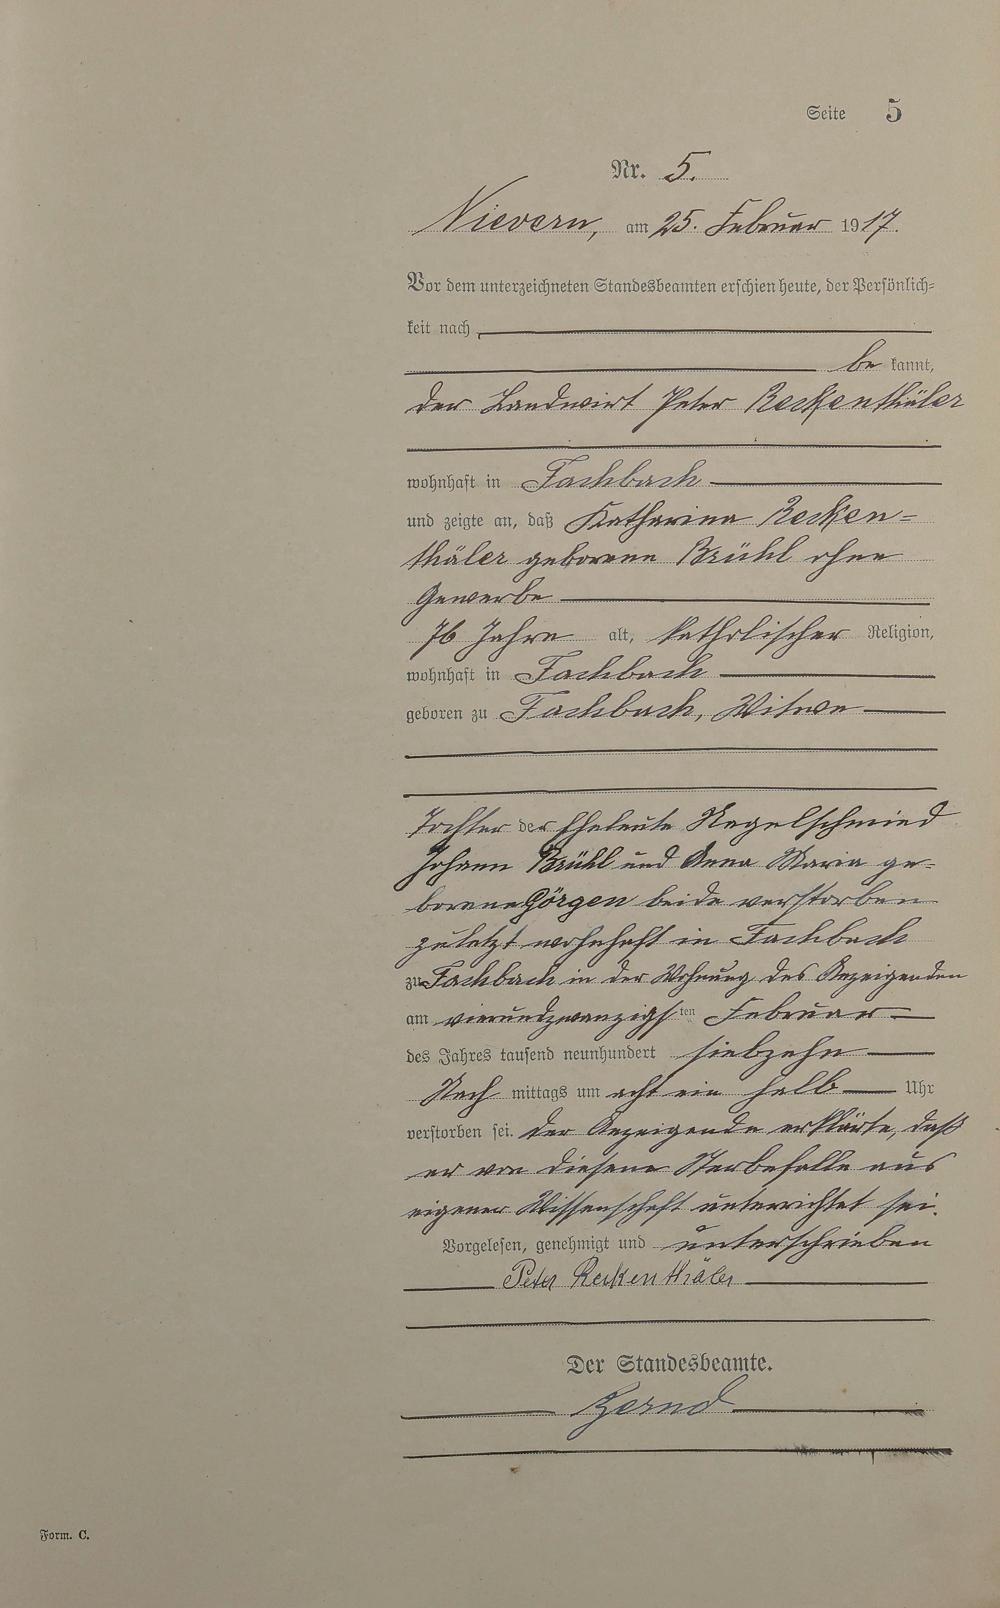 Seite 5
Nr. 5.
Nievern, am 25. Februar 1917.
Vor dem unterzeichneten Standesbeamten erschien heute, der Persönlich-
keit nach
be kannt,
der Landwirt Peter Reckenthäler
wohnhaft in Fachbach
und zeigte an, daß Katharina Recken-
thäler geborene Brühl ohne
Gewerbe
76 Jahre alt, katholischer Religion,
wohnhaft in Fachbach
geboren zu Fachbach, Witwe
Tochter der Eheleute Nagelschmied
Johann Brühl und Anna Maria ge-
borene Görgen beide verstorben
zuletzt wohnhaft in Fachbach
zu Fachbach in der Wohnung des Anzeigenden
am vierundzwanzigsten Februar
des Jahres tausend neunhundert siebzehn
Nach mittags um acht ein halb Uhr
verstorben sei. Der Anzeigende erklärte, daß
er von diesem Sterbefalle aus
eigener Wissenschaft unterrichtet sei.
Vorgelesen, genehmigt und unterschrieben
Peter Reckenthäler
Der Standesbeamte.
Form. C.